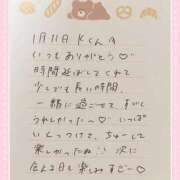 1月11日 Kくんへ
いつもありがとう♡
時間延ばしてくれて
少しでも長い時間、
一緒に過ごせて すごく
うれしかった〜♡ いっぱい
いちゃつけて、ちゅーして
楽しかったね♡ 次に
会える日も楽しみすぎ〜♡